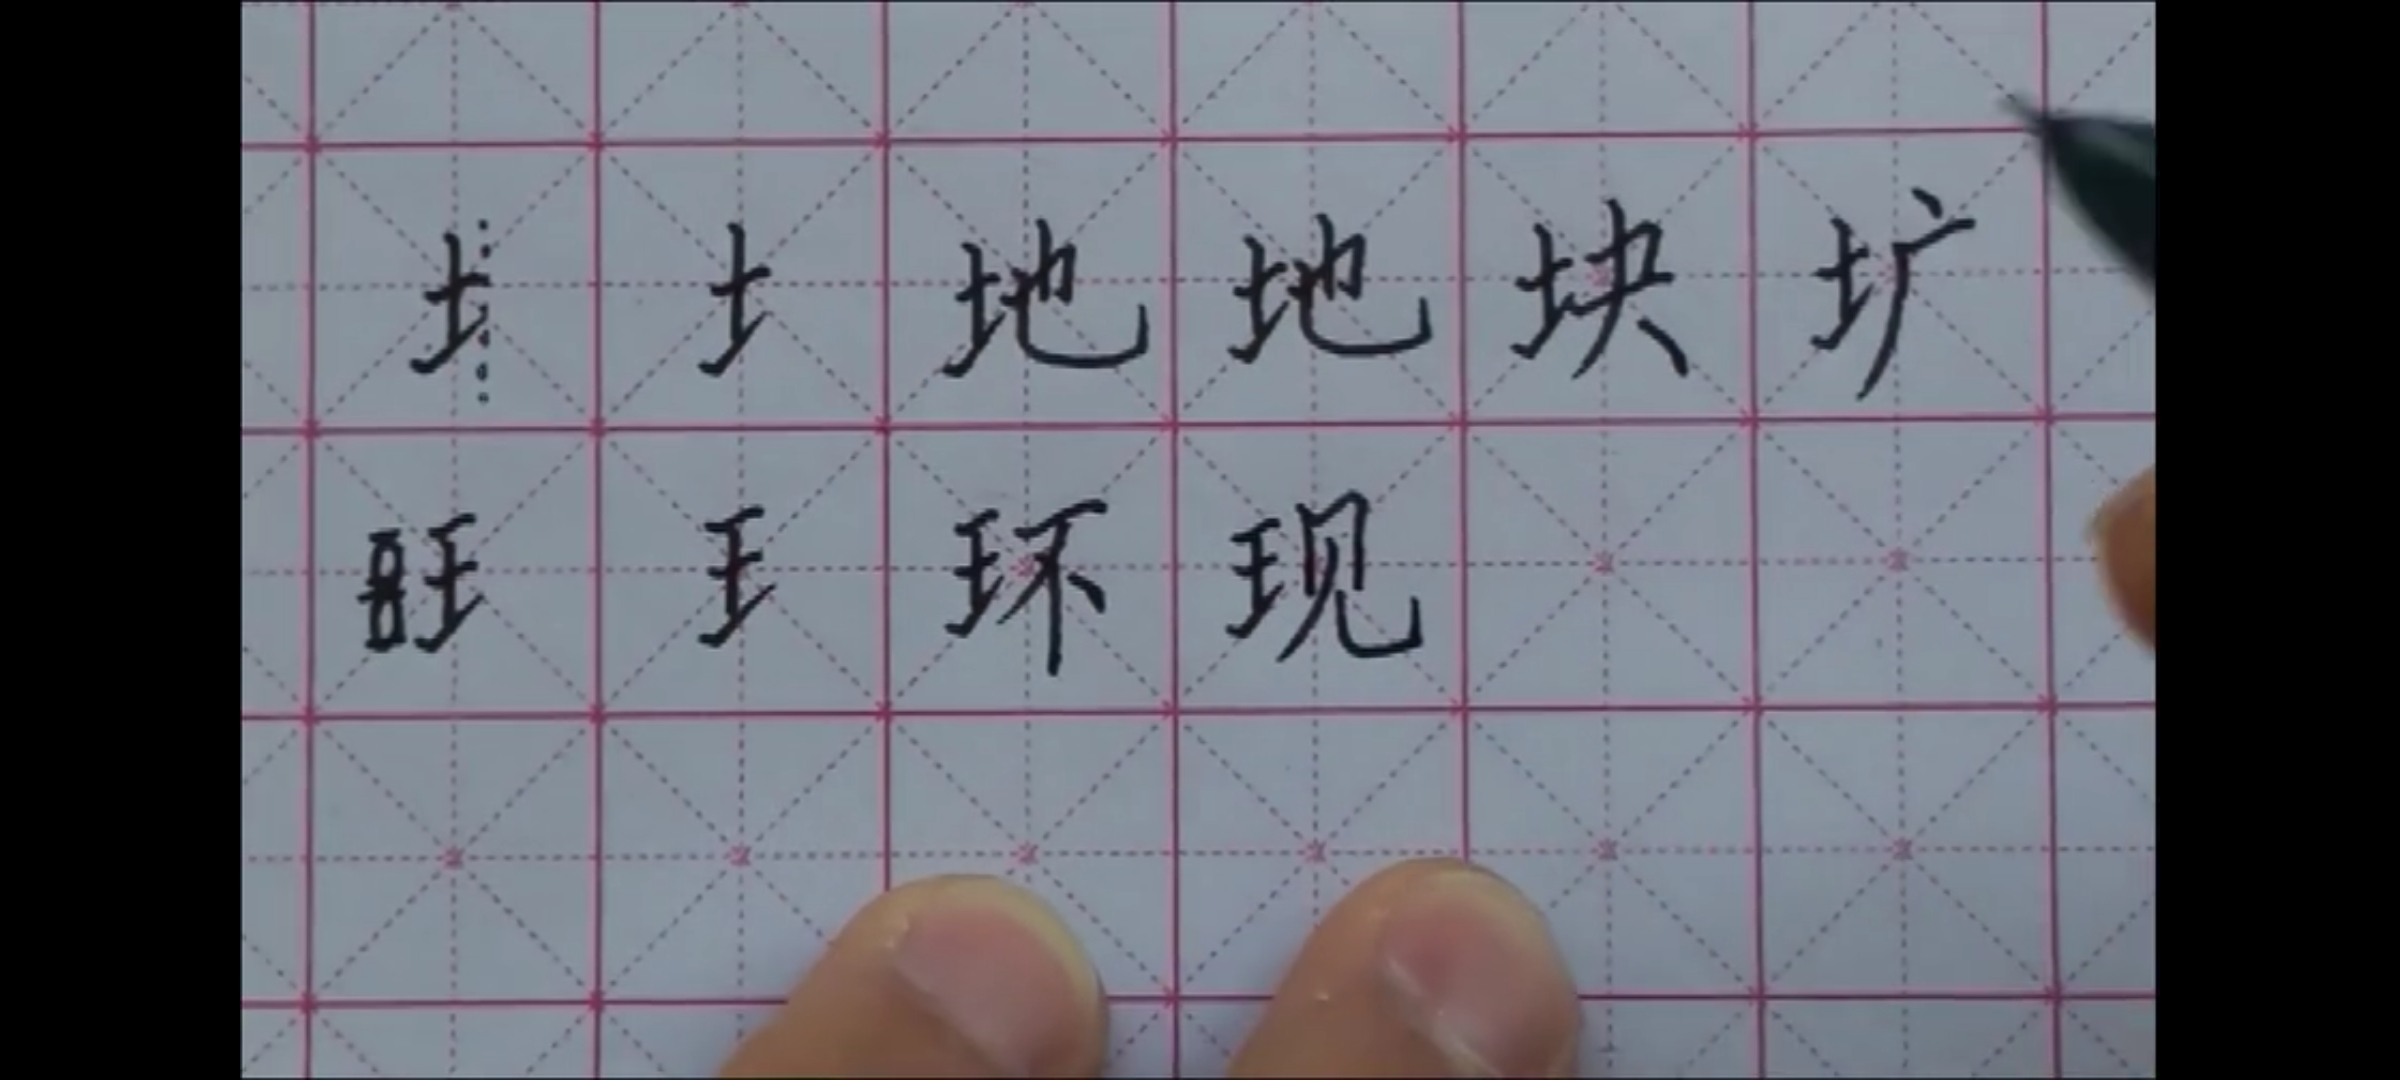 土 土 地 地 块 圹
王 王 环 现